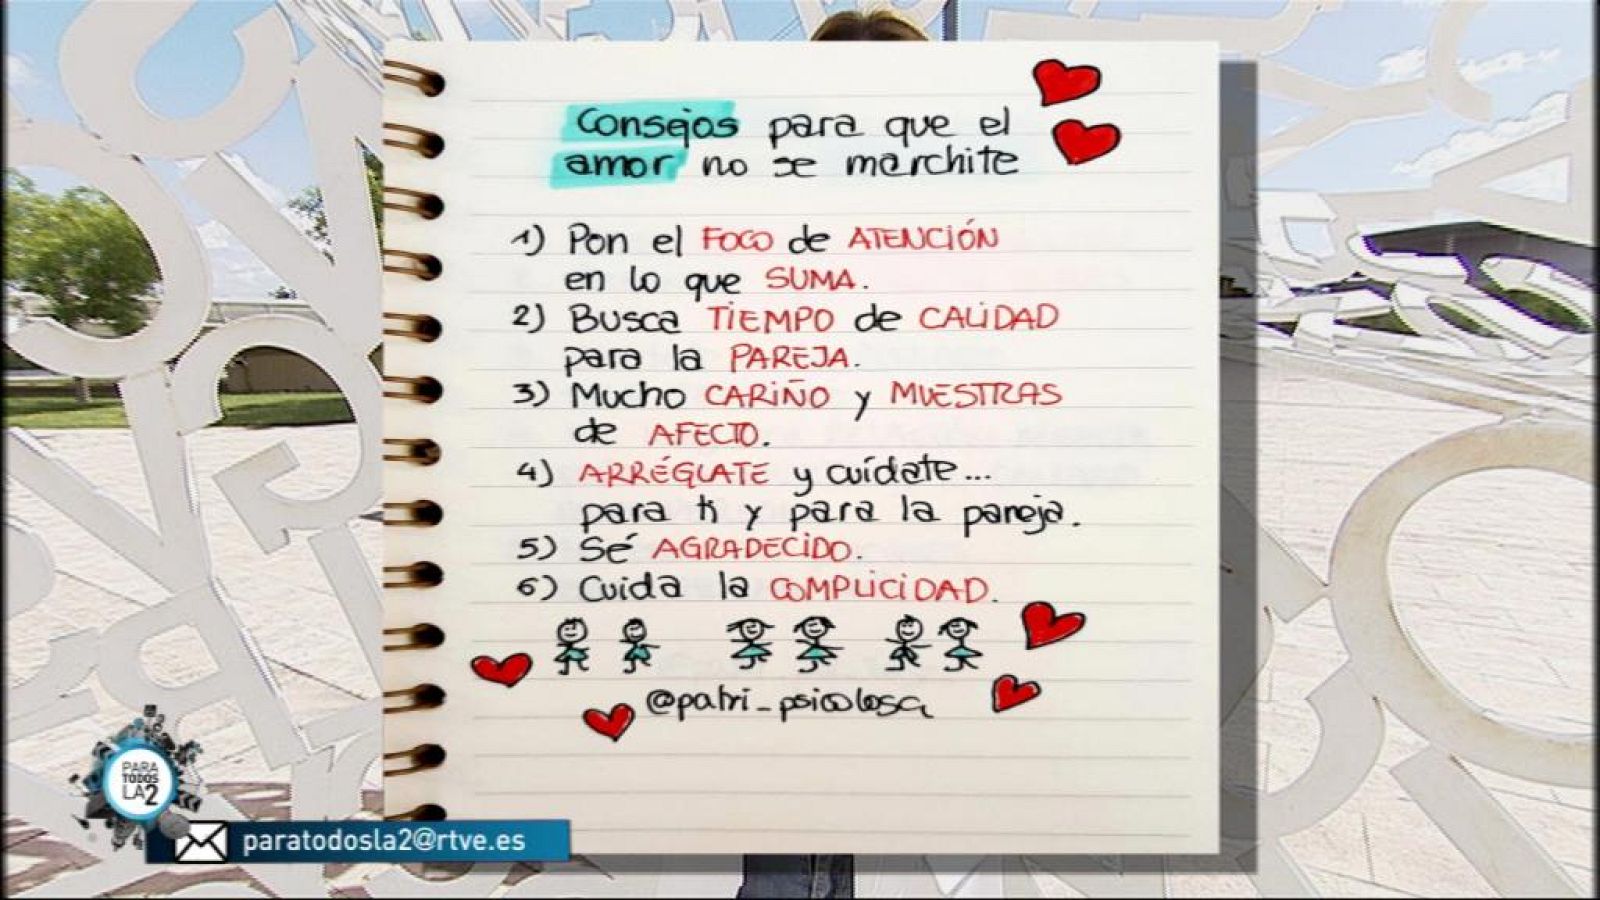 Consejos para que el
amor no se marchite
1) Pon el FOCO de ATENCIÓN
en lo que SUMA.
2) Busca TIEMPO de CALIDAD
para la PAREJA.
3) Mucho CARIÑO y MUESTRAS
de AFECTO.
4) ARRÉGLATE y cuídate...
para ti y para la pareja.
5) Sé AGRADECIDO.
6) Cuida la COMPLICIDAD.
@patri_psicologa
PARA
TODOS
LA2
paratodosla2@rtve.es